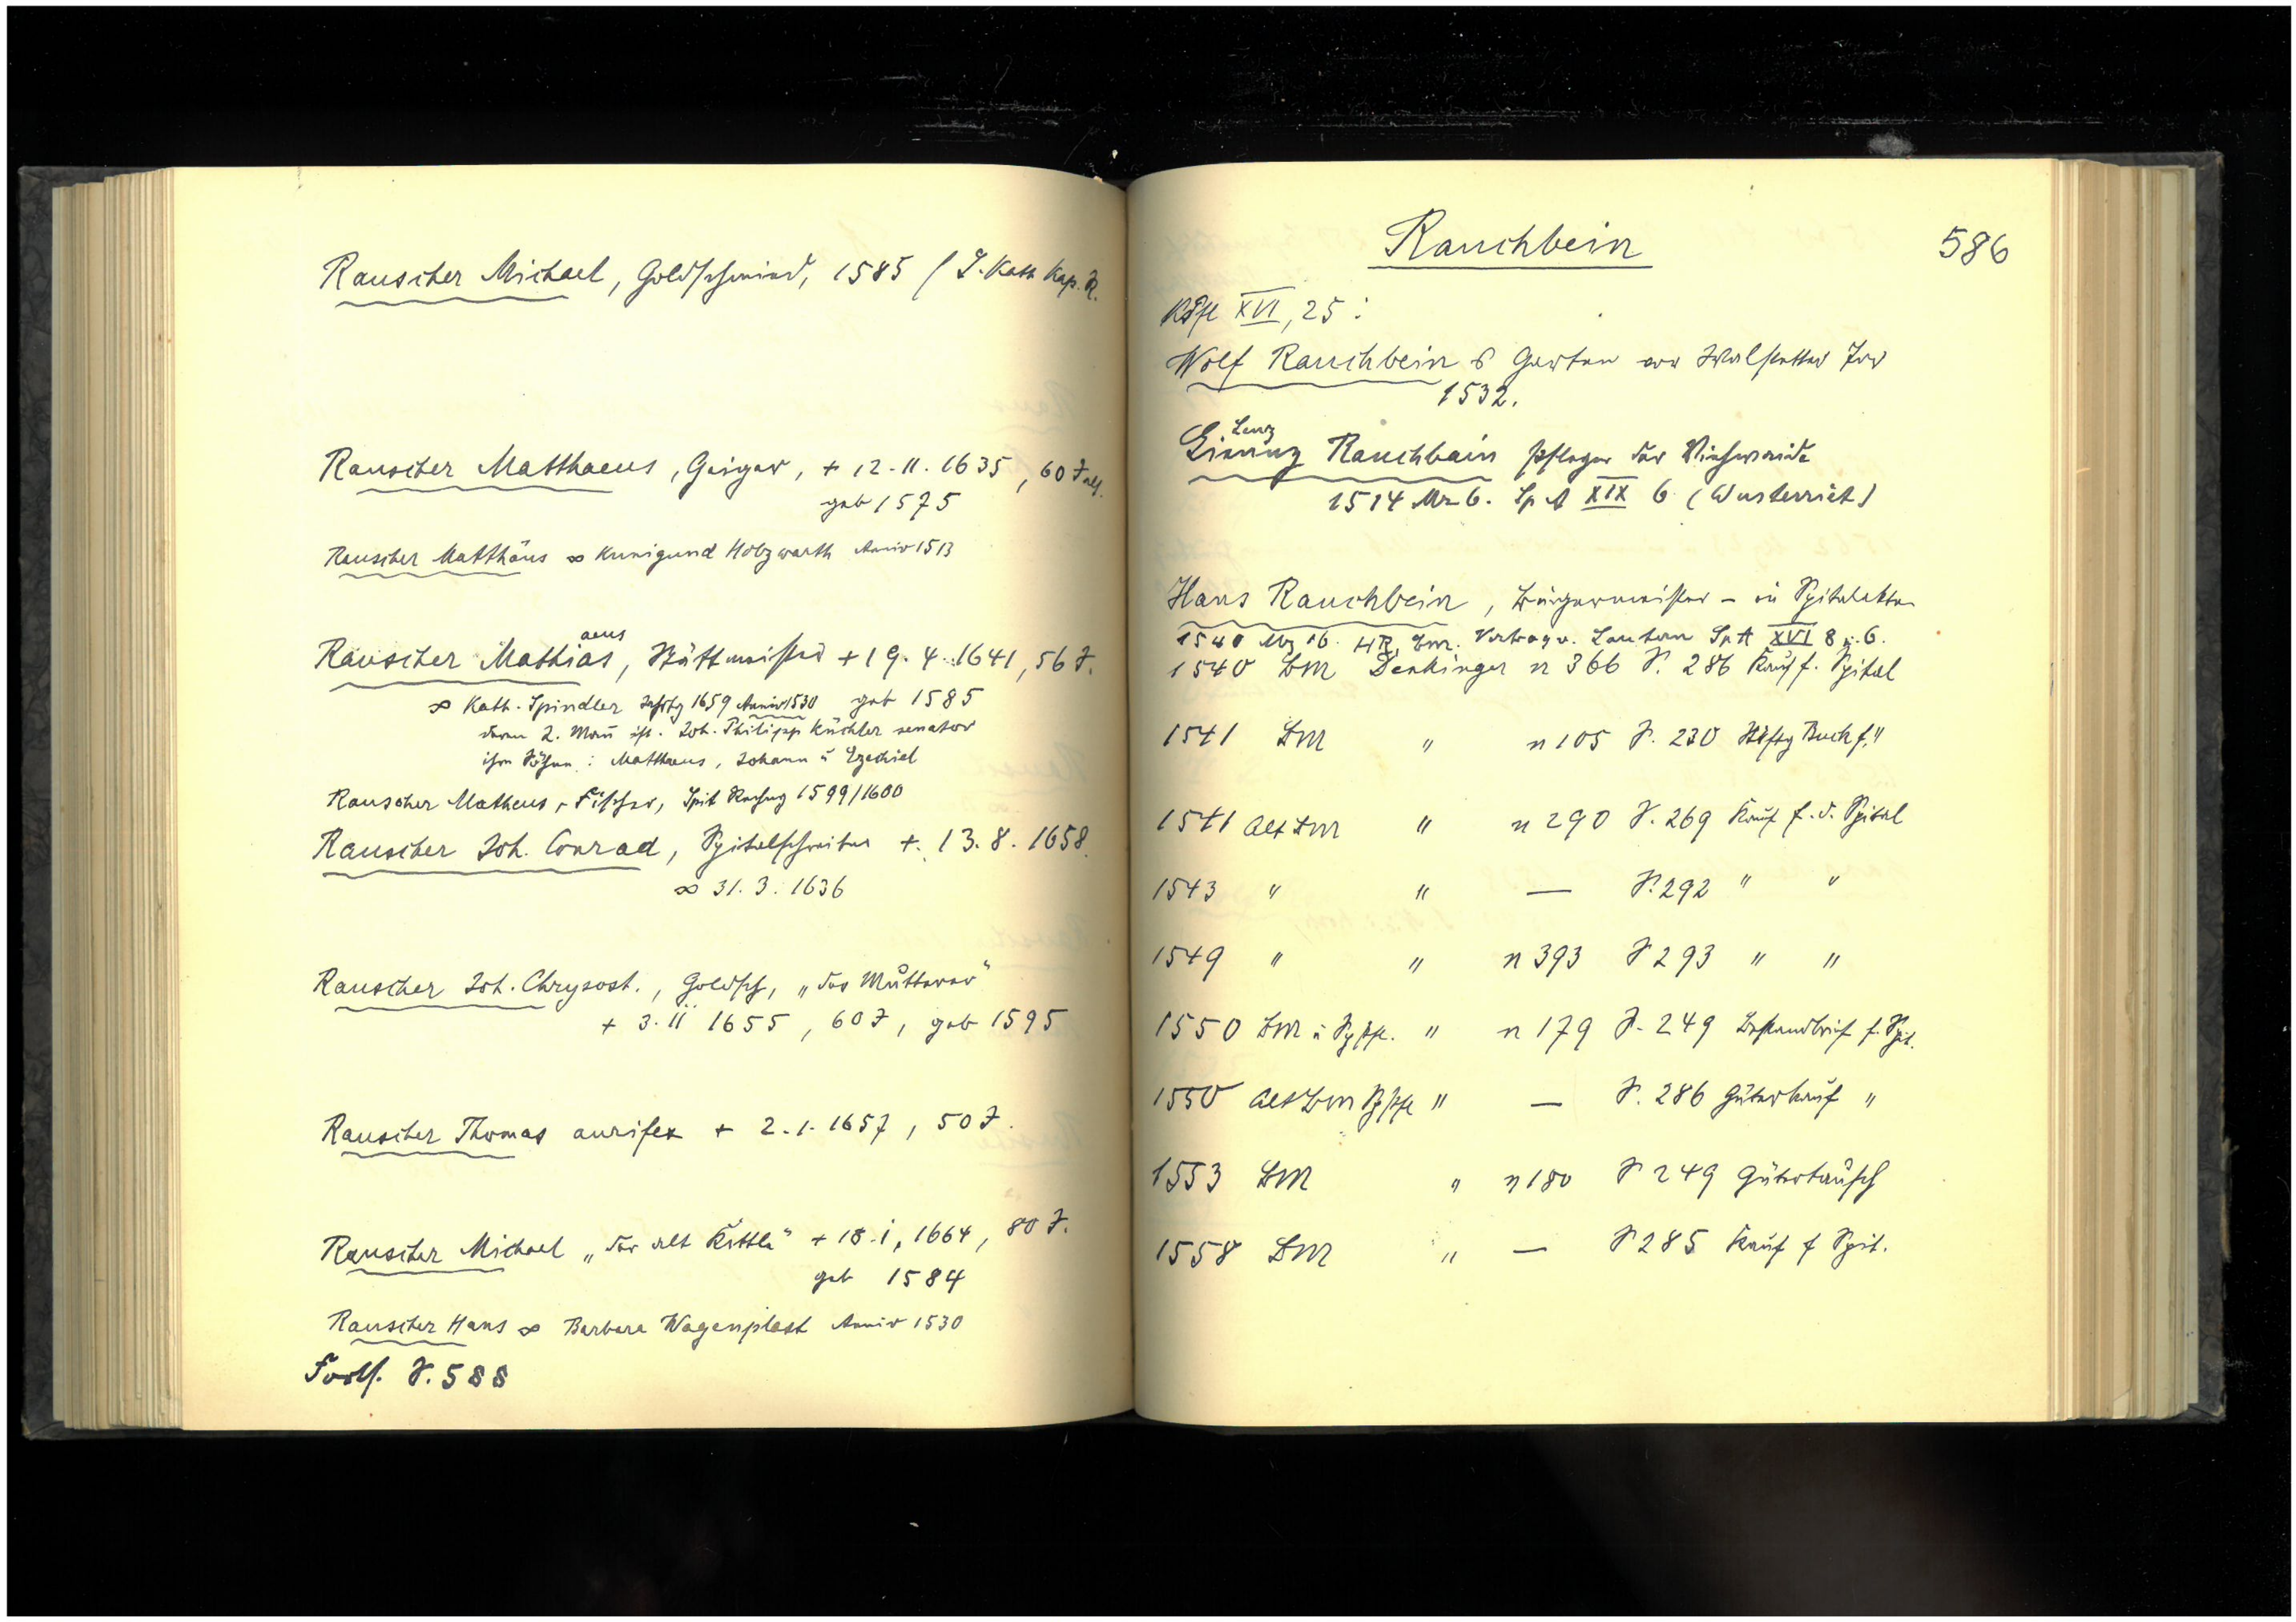 Rauscher Michael, Goldschmied, 1585 (S. Kath Kap. R.
Rauscher Matthaeus, Geiger, + 12.11.1635, 60 J alt.
geb 1575
Rauscher Matthäus ∞ Kunigund Holzwarth Anniv 1513
aeus
Rauscher Mathias, Stättmeister + 19.4.1641, 56 J.
∞ Kath. Spindler Jahrtg 1659 Anniv 1530 geb 1585
deren 2. Mann ist. Joh. Philipp Küchler senator
ihre Söhne: Matthaeus, Johann u Ezechiel
Rauscher Matheus, Fischer, Spit Rechng 1599/1600
Rauscher Joh. Conrad, Spitalschreiber +. 13.8.1658
∞ 31.3.1636
Rauscher Joh. Chrysost., Goldsch, „das Mutterer"
+ 3.11 1655, 60 J, geb 1595
Rauscher Thomas aurifex + 2.1.1657, 50 J.
Rauscher Michael „der alt Kettle" + 18.1.1664, 80 J.
geb 1584
Rauscher Hans ∞ Barbara Wagenplast Anniv 1530
Forts. S. 588
Rauchbein 586
XVI, 25:
Wolf Rauchbein Garten vor Walstetter Tor
1532.
Lenz
Rauchbain Pfleger der Viehweide
1514 Mz 6. Sp A XIX 6 (Wusterriet)
Hans Rauchbein, Bürgermeister – in Spitalakten
1540 Mz 16. HR, Bm. Vertrag v. Lautern Sp A XVI 8 u. 6.
1540 BM Denkinger n 366 S. 286 Kauf f. Spital
1541 BM " n 105 S. 230 Buch f. "
1541 Alt BM " n 290 S. 269 Kauf f. d. Spital
1543 " " — S. 292 " "
1549 " " n 393 S 293 " "
1550 BM u Sppfl. " n 179 S. 249 Bestandbrief f. Spit.
1550 Alt BM Sppfl " — S. 286 Güterkauf "
1553 BM " n 180 S 249 Gütertausch
1558 BM " — S 285 Kauf f Spit.